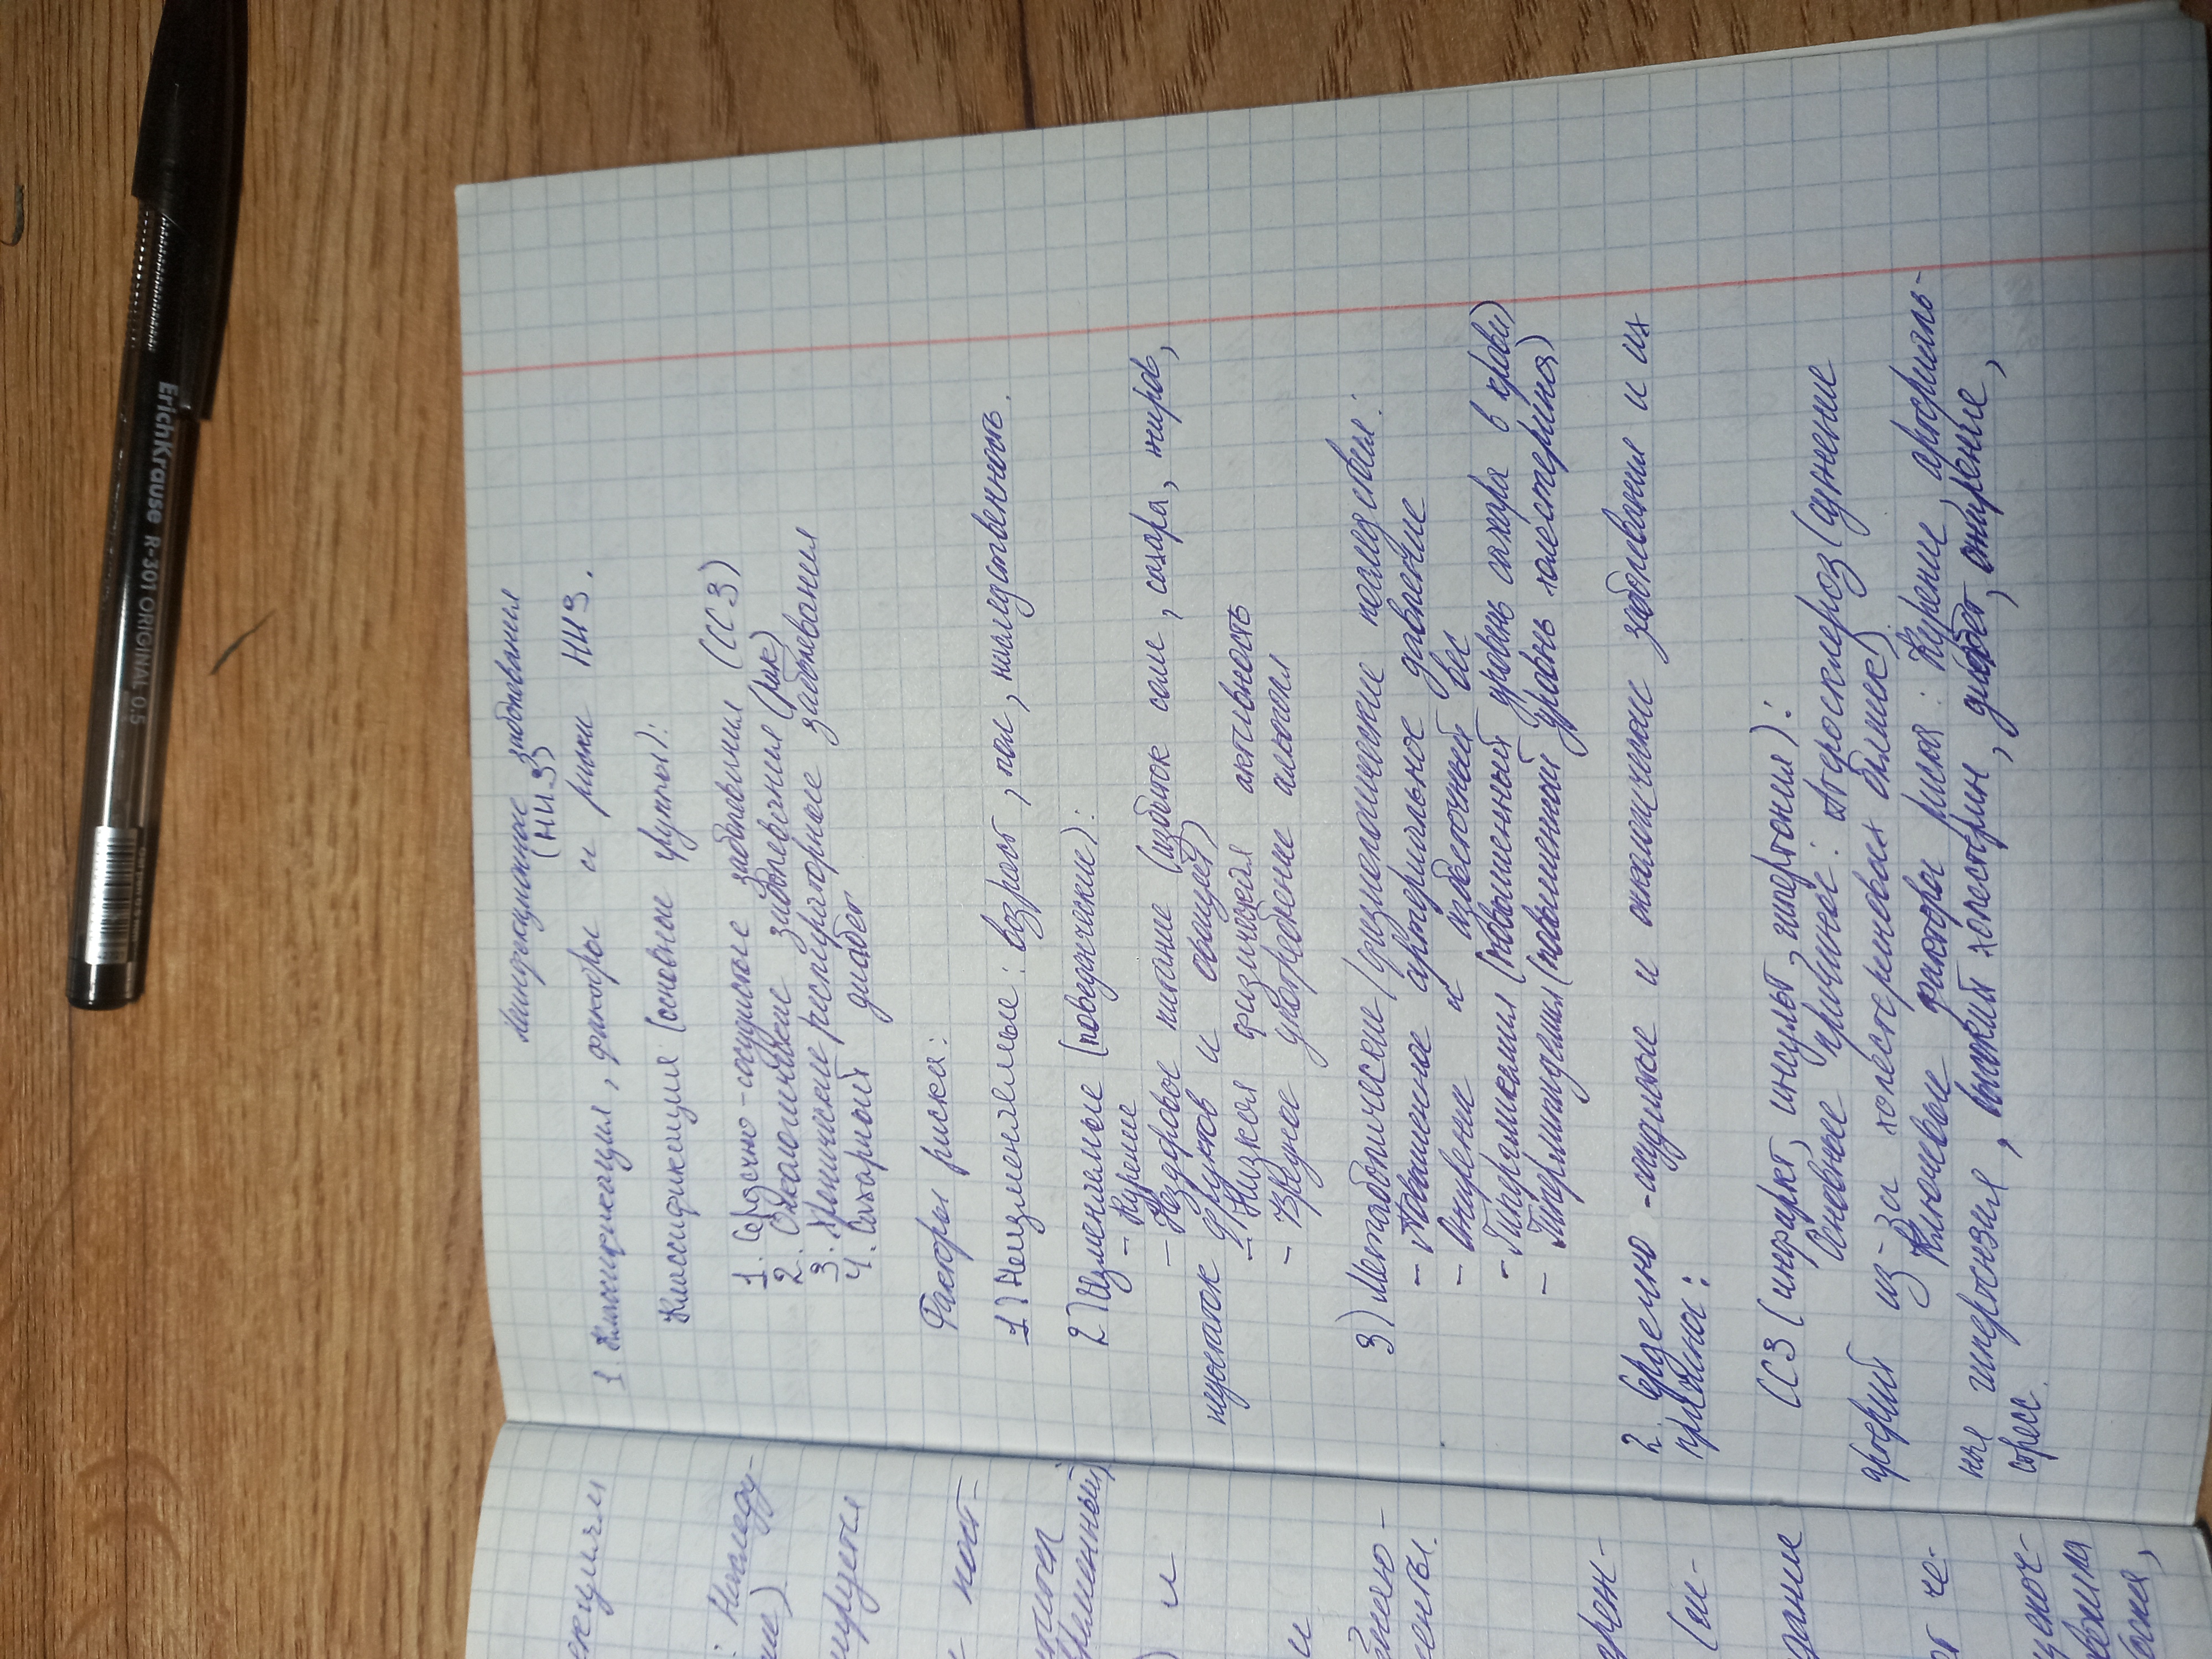 неинфекционные заболевания
(НИЗ)
1. Классификация, факторы и риски НИЗ.
Классификация (основные группы):
1. Сердечно-сосудистые заболевания (ССЗ)
2. Онкологические заболевания (рак)
3. Хронические респираторные заболевания
4. Сахарный диабет
Факторы риска:
1) Неизменяемые: возраст, пол, наследственность.
2) Изменяемые (поведенческие):
- Курение
- Нездоровое питание (избыток соли, сахара, жиров,
недостаток фруктов и овощей)
- Низкая физическая активность
- Вредное употребление алкоголя
3) Метаболические (физиологические последствия:
- Повышенное артериальное давление
- Ожирение и избыточный вес
- Гипергликемия (повышенный уровень сахара в крови)
- Гиперлипидемия (повышенный уровень холестерина)
2. Сердечно-сосудистые и онкологические заболевания и их
причины:
ССЗ (инфаркт, инсульт, гипертония):
Основные причины: Атеросклероз (сужение
артерий из-за холестериновых бляшек)
Ключевые факторы риска: Курение, артериаль-
ная гипертензия, высокий холестерин, диабет, ожирение,
стресс.
екциями
: Наследу-
ние)
мируется
пост-
временный)
и
и
енты.
рен-
(ли-
дание
от че-
ErichKrause R-301 ORIGINAL 0.5